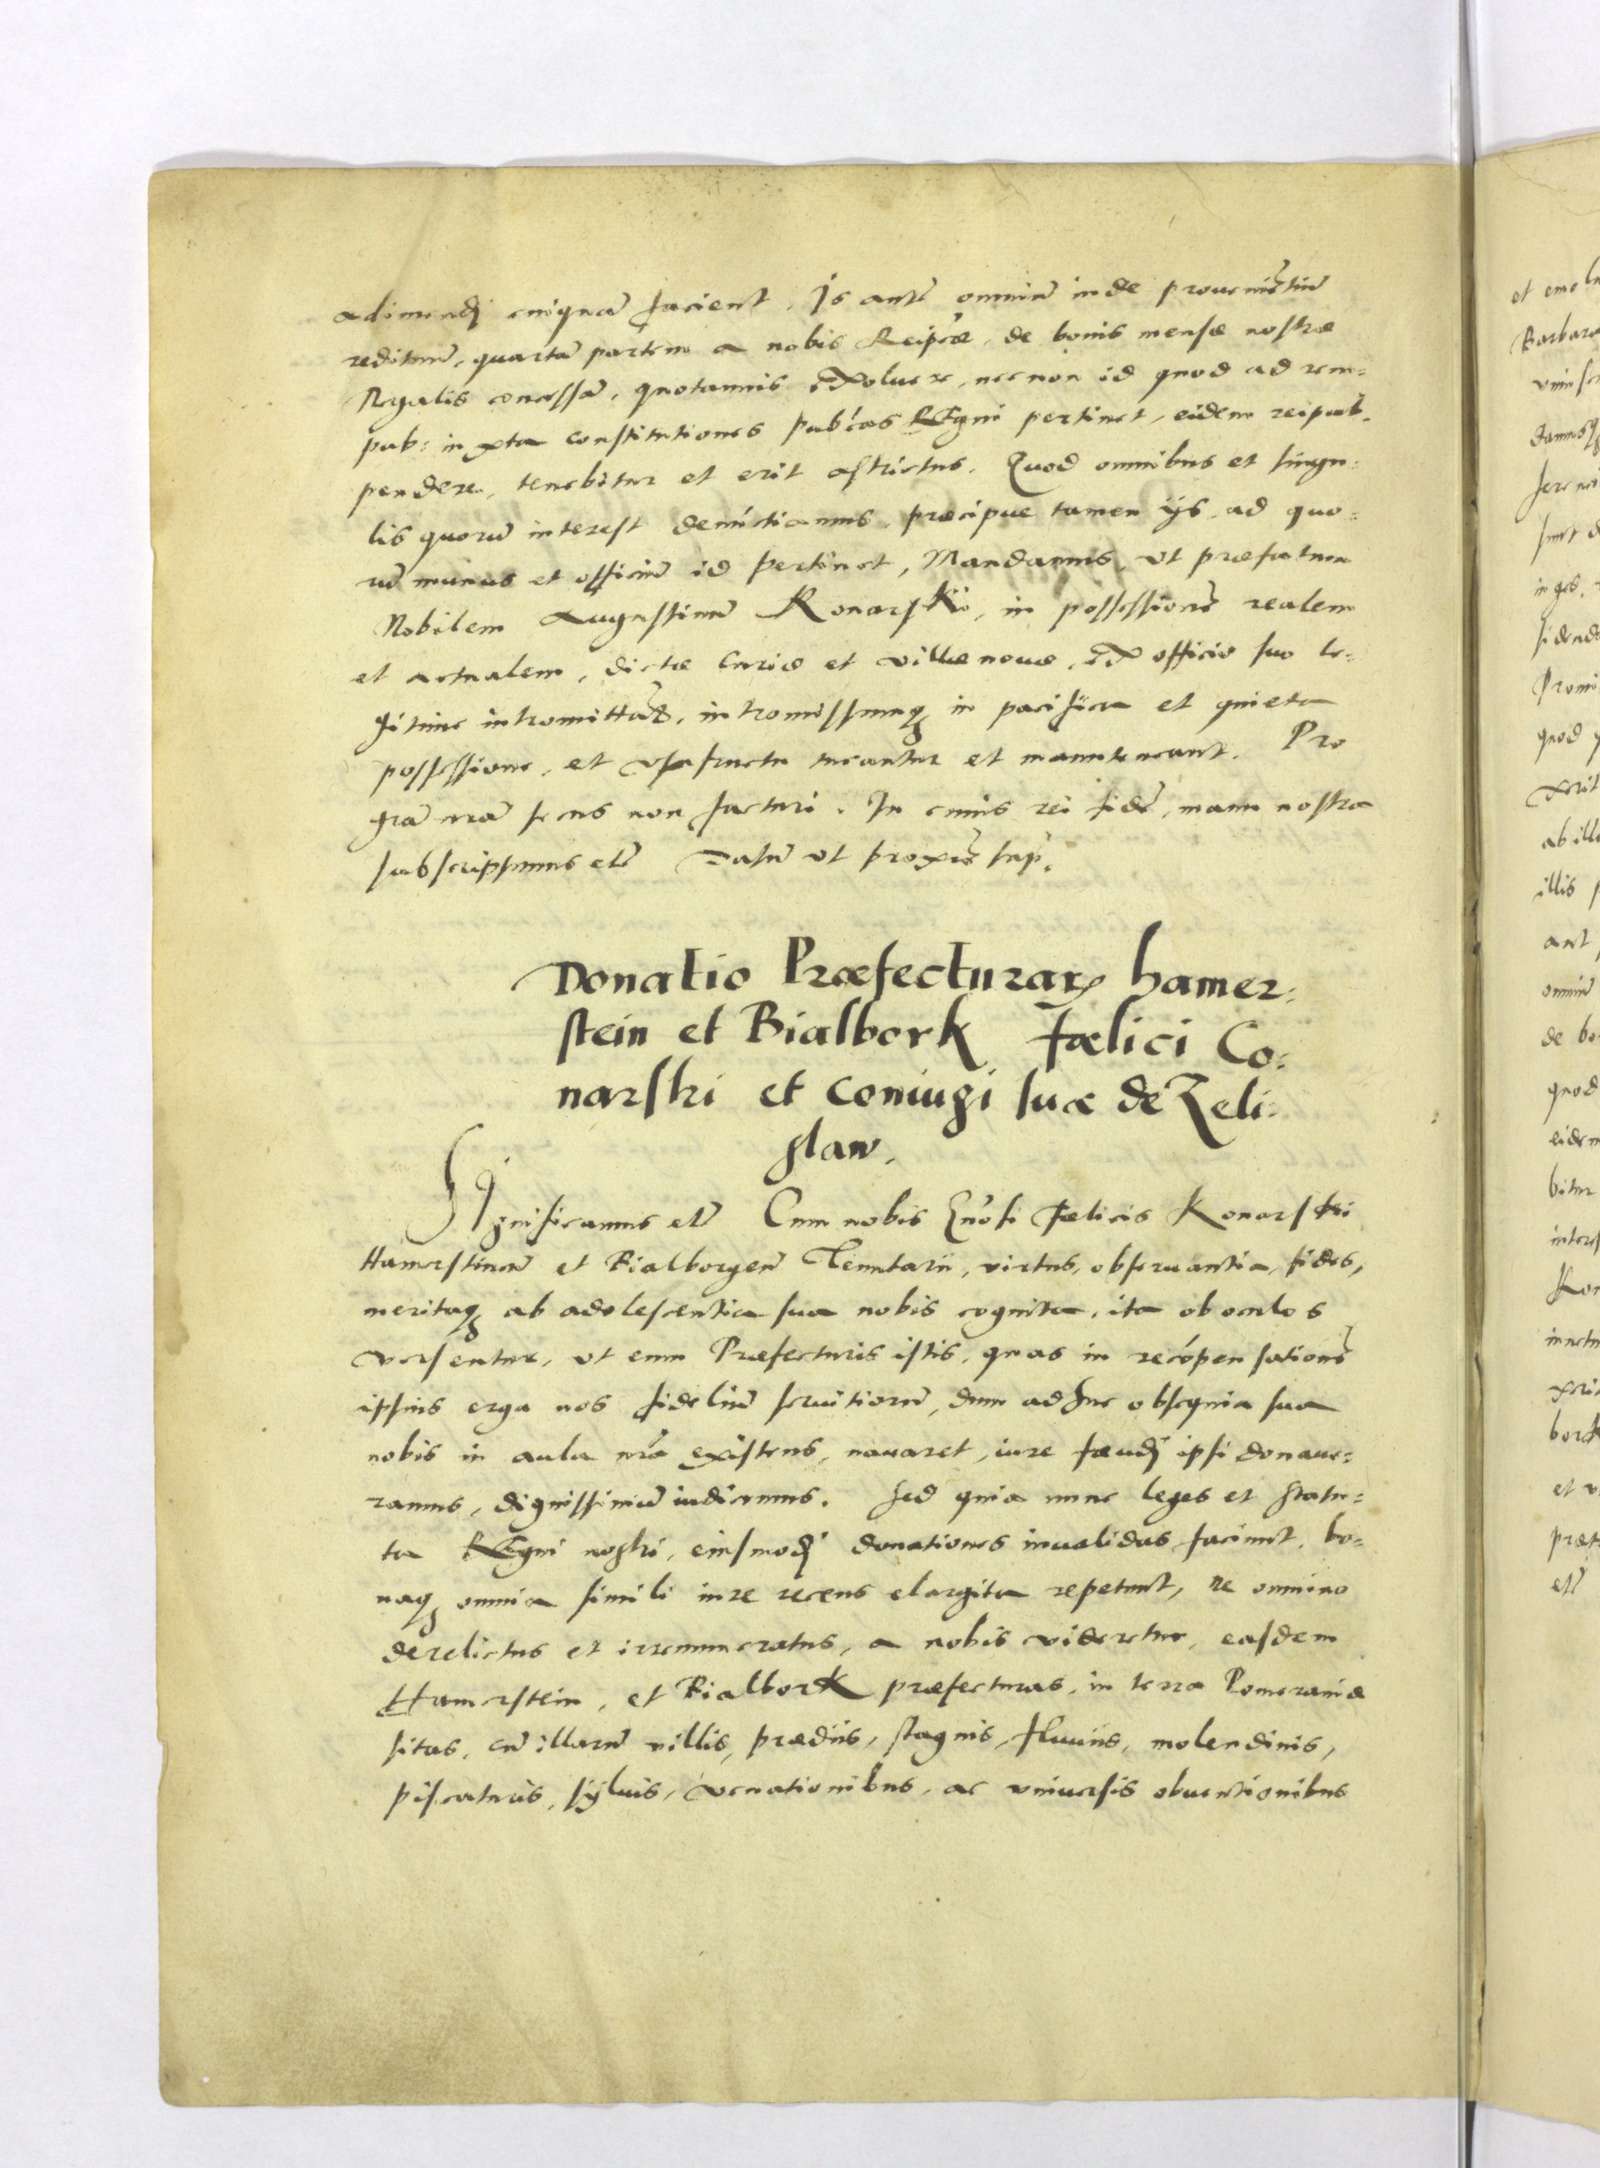 adimendj cuiqua facient. Is ante omniu inde prouenietiu
redituu, quarta partem a nobis Reipcæ, de bonis mensæ nostræ
Regalis concessa, quotannis exoluere, nec non id quod ad rem-
pub: iuxta constitutiones pubcas REgni pertinet, eidem reipub.
pendere, tenebitur et erit astrictus. Quod omnibus et singu-
lis quoru interest denuctiamus, præcipue tamen ijs, ad quo-
ru munus et officiu id pertinet, Mandamus, vt præfatum
Nobilem Augustinu Konarskii, in possessione realem
et actualem, dictæ Curiæ et villæ nouæ, ex officio suo le-
gitime intromittat, intromissumq in pacifica et quieta
possessione, et vsufructu tueantur et manuteneant. Pro
gra nra secus non facturi. In cuius rei fide, manu nostra
subscripsimus etc Datu vt proxie sup.
Donatio Præfecturar Hamer-
stein et Bialbork Fælici Co-
narski et coniugi suæ de Zeli-
slaw.
SIgnificamus etc Cum nobis Gnosi Fælicis Konarski
Hamerstinen et Bialborgen Tenutarii, virtus, obseruantia, fides,
meritaq ab adolescentia sua nobis cognita, ita ob oculos
versentur, vt eum Præfecturis istis, quas in recopensatione
ipsius erga nos fideliu seruitioru, dum adhuc obsequia sua
nobis in aula nra existens, nauaret, iure fæudj ipsi donaue-
ramus, dignissimu iudicemus. Sed quia nunc leges et statu-
ta REgni nostri, eiusmodj donationes inualidas faciunt, bo-
naq omnia simili iure recens elargita repetunt, ne omnino
derelictus et irremuneratus, a nobis videretur, easdem
Hamerstein, et Bialbork præfecturas, in terra Pomeraniæ
sitas, cu illaru villis, prædiis, stagnis, fluuiis, molendinis,
piscaturis, syluis, venationibus, ac vniuersis obuentionibus